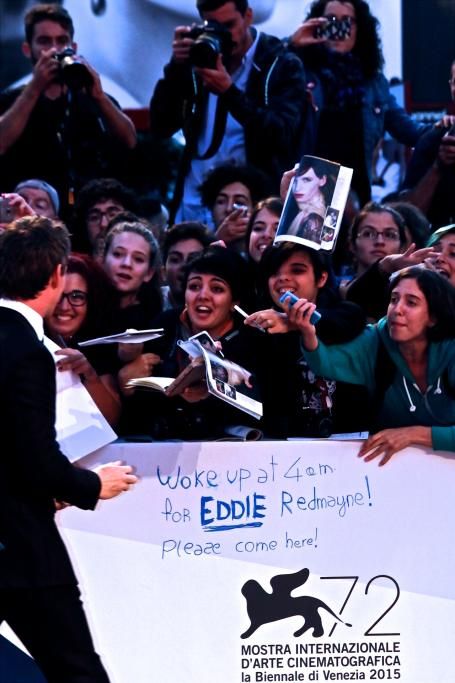 Woke up at 4am
for EDDIE Redmayne!
Please come here!
72
MOSTRA INTERNAZIONALE
D'ARTE CINEMATOGRAFICA
la Biennale di Venezia 2015